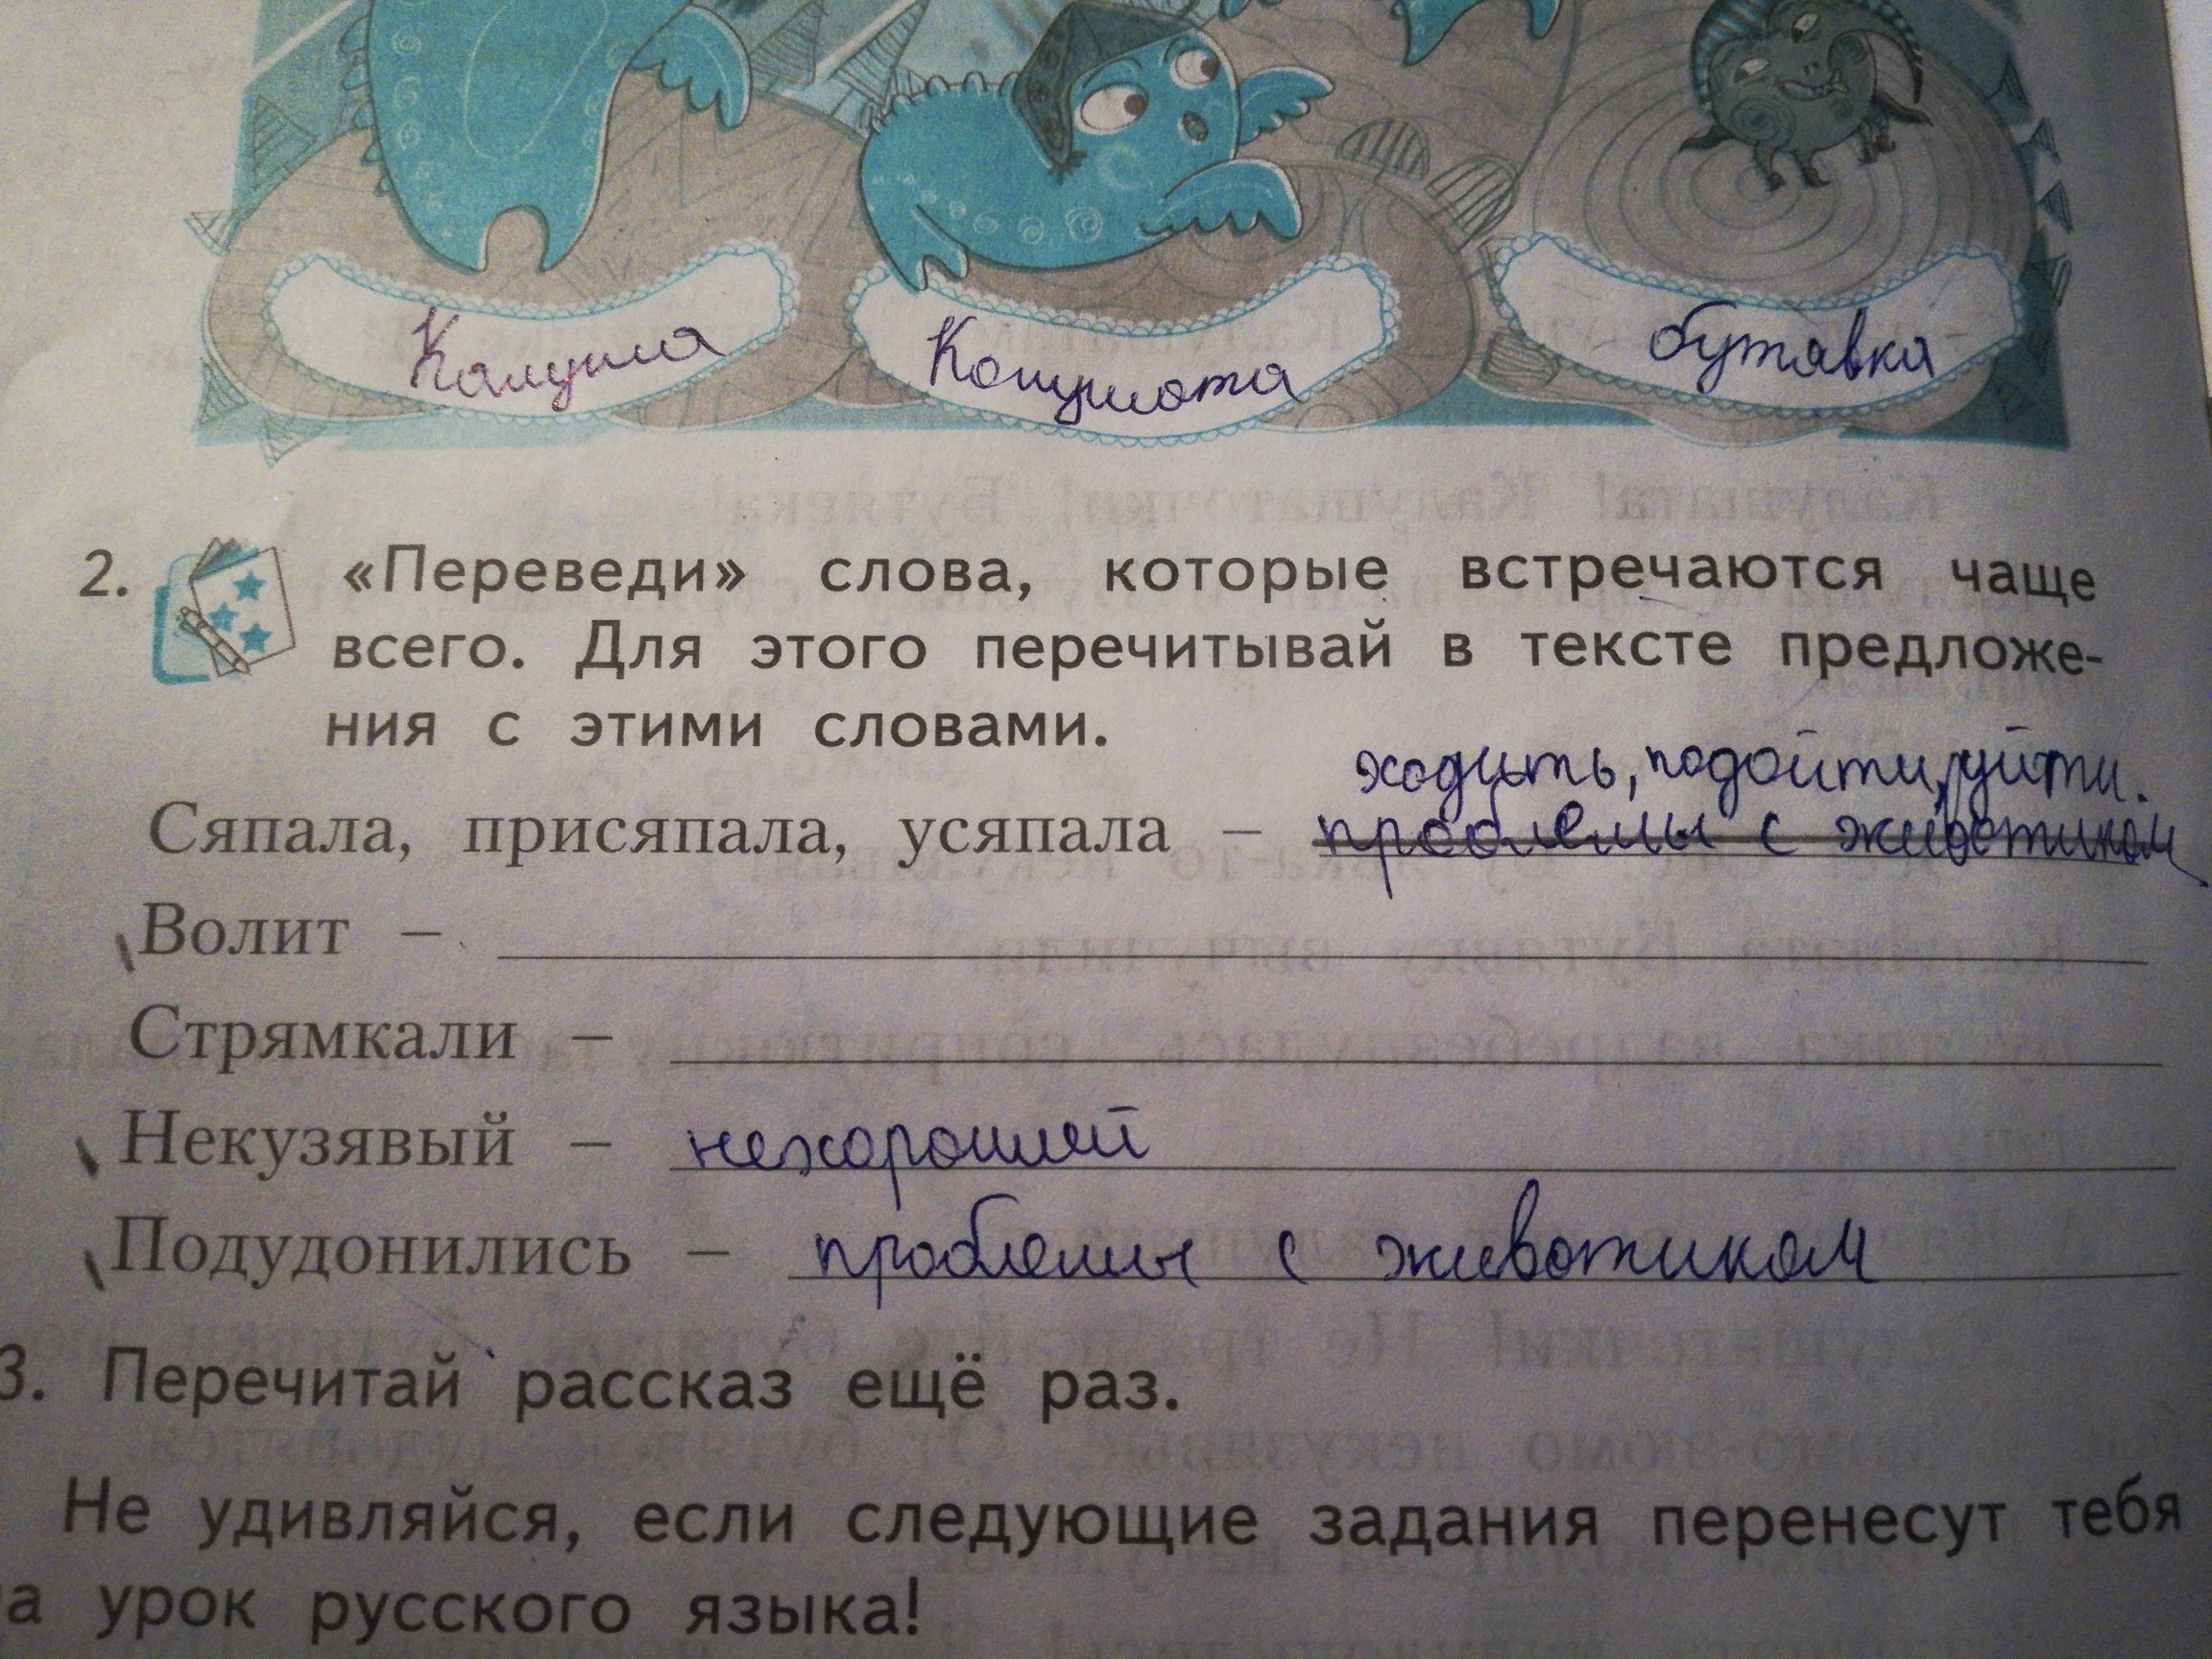 Калуша
Калушата
бутявка
2. «Переведи» слова, которые встречаются чаще
всего. Для этого перечитывай в тексте предложе-
ния с этими словами.
ходить, подойти, уйти.
Сяпала, присяпала, усяпала – проблемы с животиком
Волит –
Стрямкали –
Некузявый – нехороший
Подудонились – проблемы с животиком
3. Перечитай рассказ ещё раз.
Не удивляйся, если следующие задания перенесут тебя
а урок русского языка!